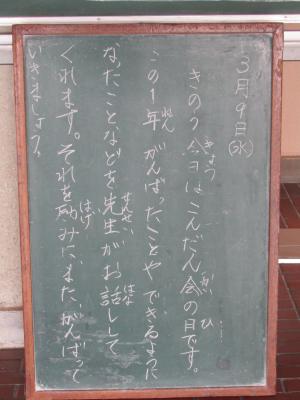 3月9日(水)
きのう今日はこんだん会の日です。
この1年がんばったことやできるように
なったことなどを先生がお話しして
くれます。それを励みに、また、がんばって
いきましょう。